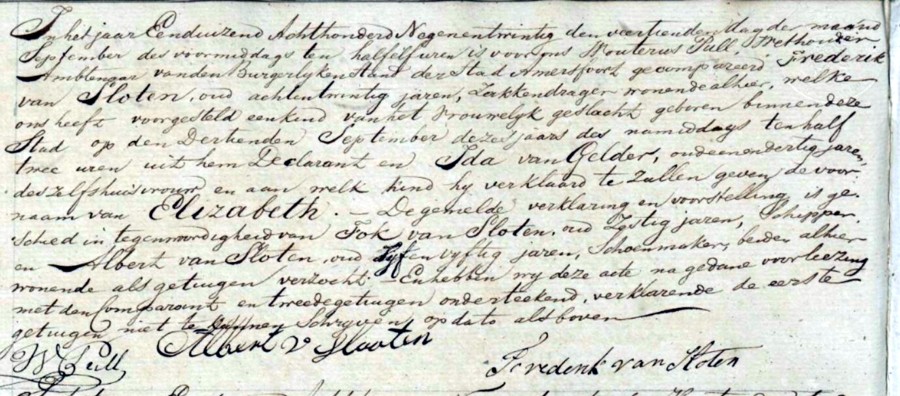 In het jaar Eenduizend Achthonderd Negenentwintig den veertienden dag der maand
September des voormiddags ten half elf uren is voor ons Wouterus Pull Wethouder
Ambtenaar van den Burgerlyken Stand der Stad Amersfoort gecompareerd Frederik
van Sloten, oud achtentwintig jaren, Zakkendrager wonende alhier, welke
ons heeft voorgesteld een kind van het Vrouwelyk geslacht geboren binnen deze
Stad op den Dertienden September dezes jaars des namiddags ten half
twee uren uit hem Declarant en Ida van Gelder, oud eenendertig jaren,
deszelfs huisvrouw en aan welk kind hy verklaard te zullen geven de voor-
naam van Elizabeth. — De gemelde verklaring en voorstelling is ge-
schied in tegenwoordigheid van Fok van Sloten, oud Zestig jaren, Schipper,
en Albert van Sloten, oud Vyfenvyftig jaren, Schoenmaker, beiden alhier
wonende als getuigen verzocht. En hebben wy deze acte na gedane voorlezing
met den Comparant en tweede getuigen onderteekend, verklarende de eerste
getuigen niet te kunnen Schryven, op dato als boven
W Pull
Albert v Slooten
Frederik van Sloten